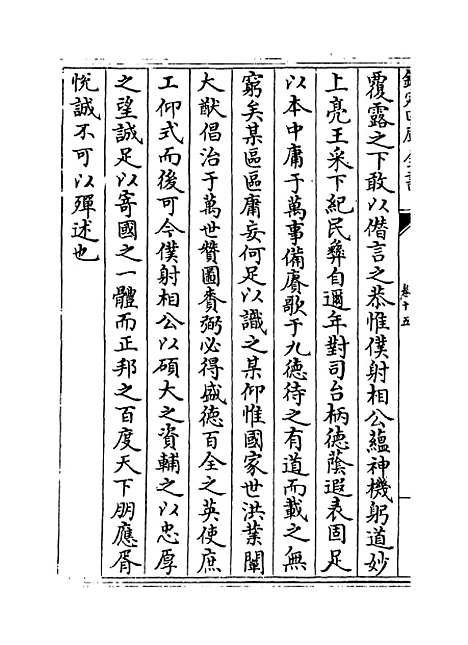 欽定四庫全書
卷十五
覆露之下敢以僭言之恭惟僕射相公蘊神機躬道妙
上亮王采下紀民彝自邇年對司台柄德蔭遐表固足
以本中庸于萬事備賡歌于九德待之有道而載之無
窮矣某區區庸妄何足以識之某仰惟國家世洪業闡
大猷倡治于萬世贊圖賚弼必得盛德百全之英使庶
工仰式而後可今僕射相公以碩大之資輔之以忠厚
之望誠足以寄國之一體而正邦之百度天下朋應胥
悅誠不可以殫述也